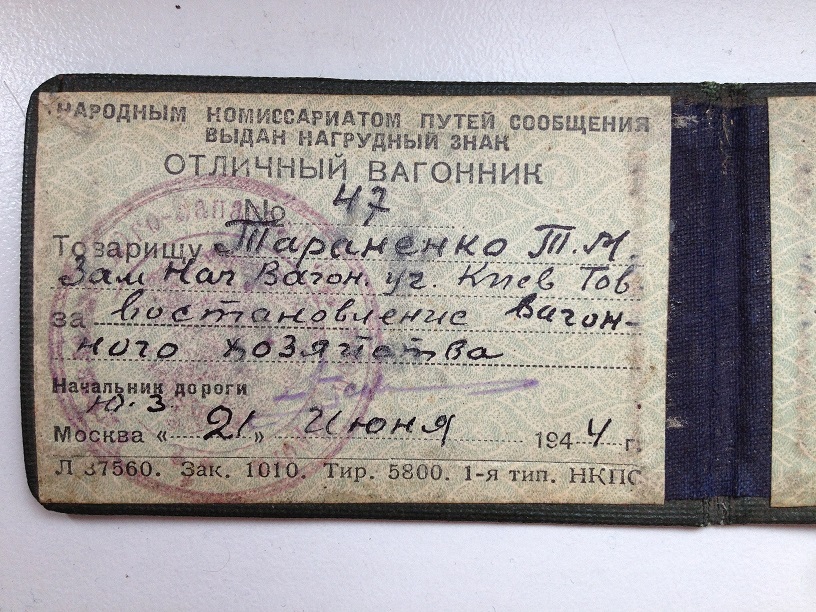 НАРОДНЫМ КОМИССАРИАТОМ ПУТЕЙ СООБЩЕНИЯ
ВЫДАН НАГРУДНЫЙ ЗНАК
ОТЛИЧНЫЙ ВАГОННИК
No 47
Товарищу Тараненко Т.М.
Зам Нач Вагон. уч. Киев Тов.
за востановление вагон-
ного хозяйства
Начальник дороги
Ю.З.
Москва «21» Июня 1944 г.
Л 37560. Зак. 1010. Тир. 5800. 1-я тип. НКПС